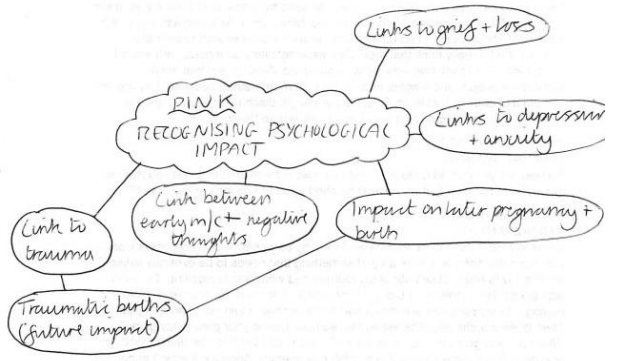 Links to grief + loss
PINK
RECOGNISING PSYCHOLOGICAL
IMPACT
Links to depression
+ anxiety
Link between
early m/c + negative
thoughts
Impact on later pregnancy +
birth
Link to
trauma
Traumatic births
(future impact)